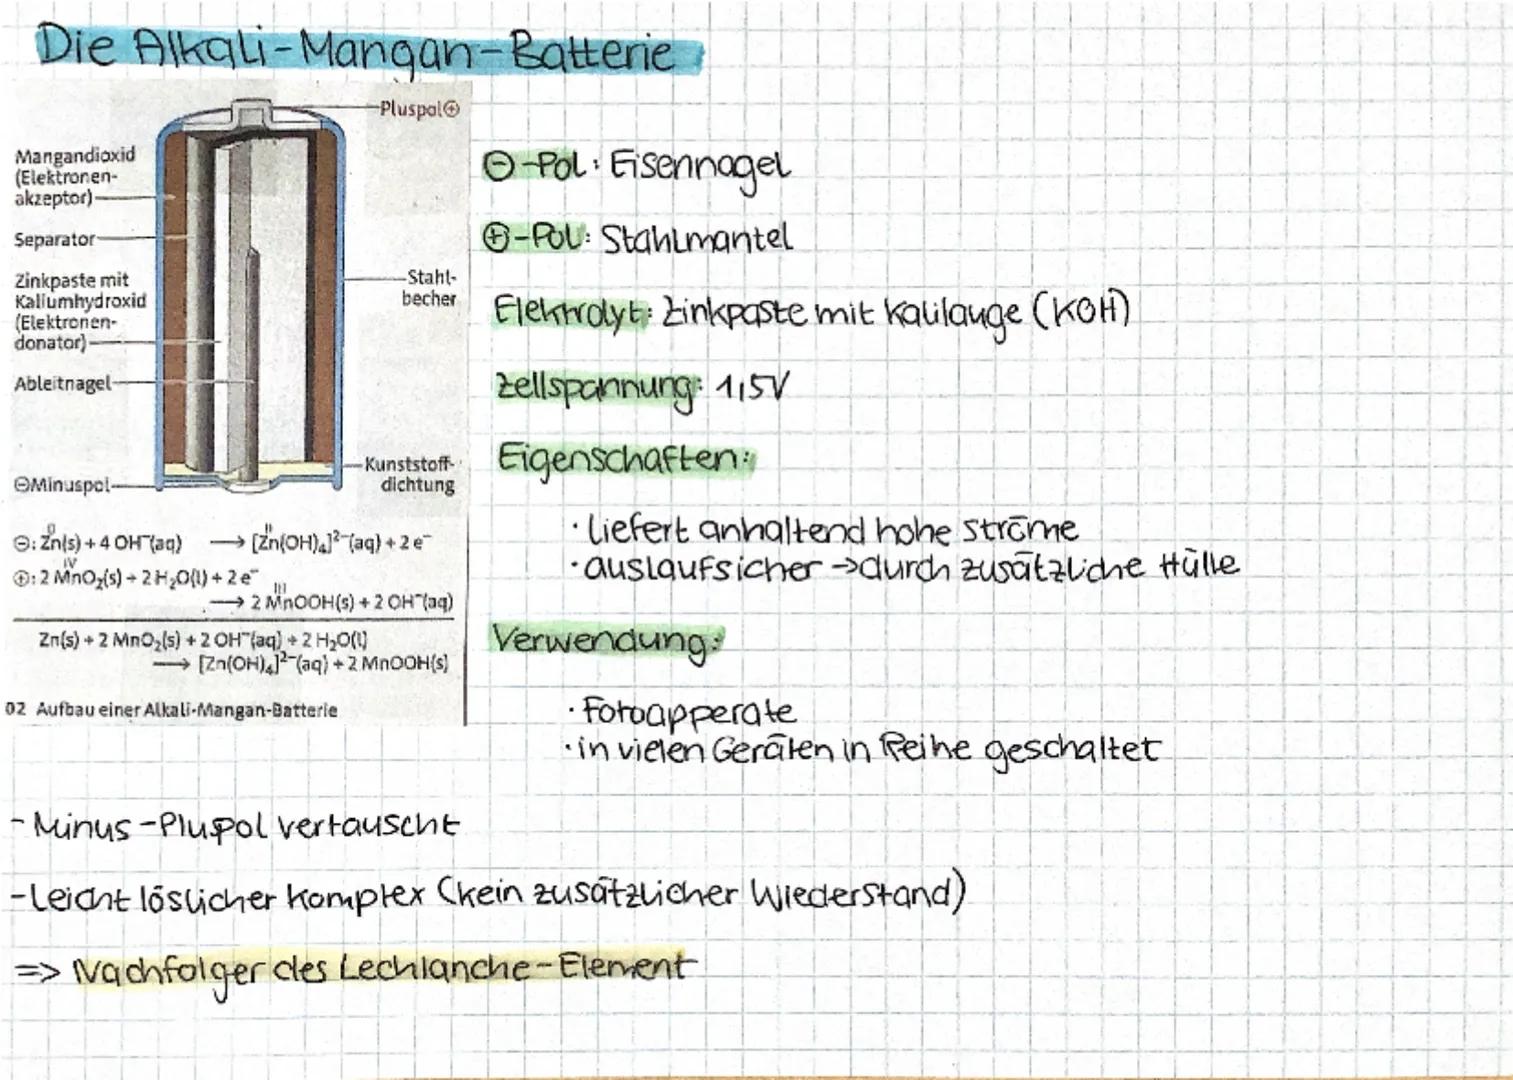 Die Alkali-Mangan-Batterie
Pluspol⊕
Mangandioxid
(Elektronen-
akzeptor)
Separator
Zinkpaste mit
Kaliumhydroxid
(Elektronen-
donator)
Ableitnagel
⊖Minuspol
Stahl-
becher
Kunststoff-
dichtung
0 II
⊖: Zn(s) + 4 OH⁻(aq) ⟶ [Zn(OH)₄]²⁻(aq) + 2 e⁻
IV
⊕: 2 MnO₂(s) + 2 H₂O(l) + 2 e⁻
III
⟶ 2 MnOOH(s) + 2 OH⁻(aq)
Zn(s) + 2 MnO₂(s) + 2 OH⁻(aq) + 2 H₂O(l)
⟶ [Zn(OH)₄]²⁻(aq) + 2 MnOOH(s)
02 Aufbau einer Alkali-Mangan-Batterie
⊖-Pol: Eisennagel
⊕-Pol: Stahlmantel
Elektrolyt: Zinkpaste mit Kalilauge (KOH)
Zellspannung: 1,5V
Eigenschaften:
· liefert anhaltend hohe Ströme
· auslaufsicher → durch zusätzliche Hülle
Verwendung:
· Fotoapperate
· in vielen Geräten in Reihe geschaltet
- Minus-Pluspol vertauscht
- Leicht löslicher Komplex (kein zusätzlicher Wiederstand)
=> Nachfolger des Lechlanche-Element